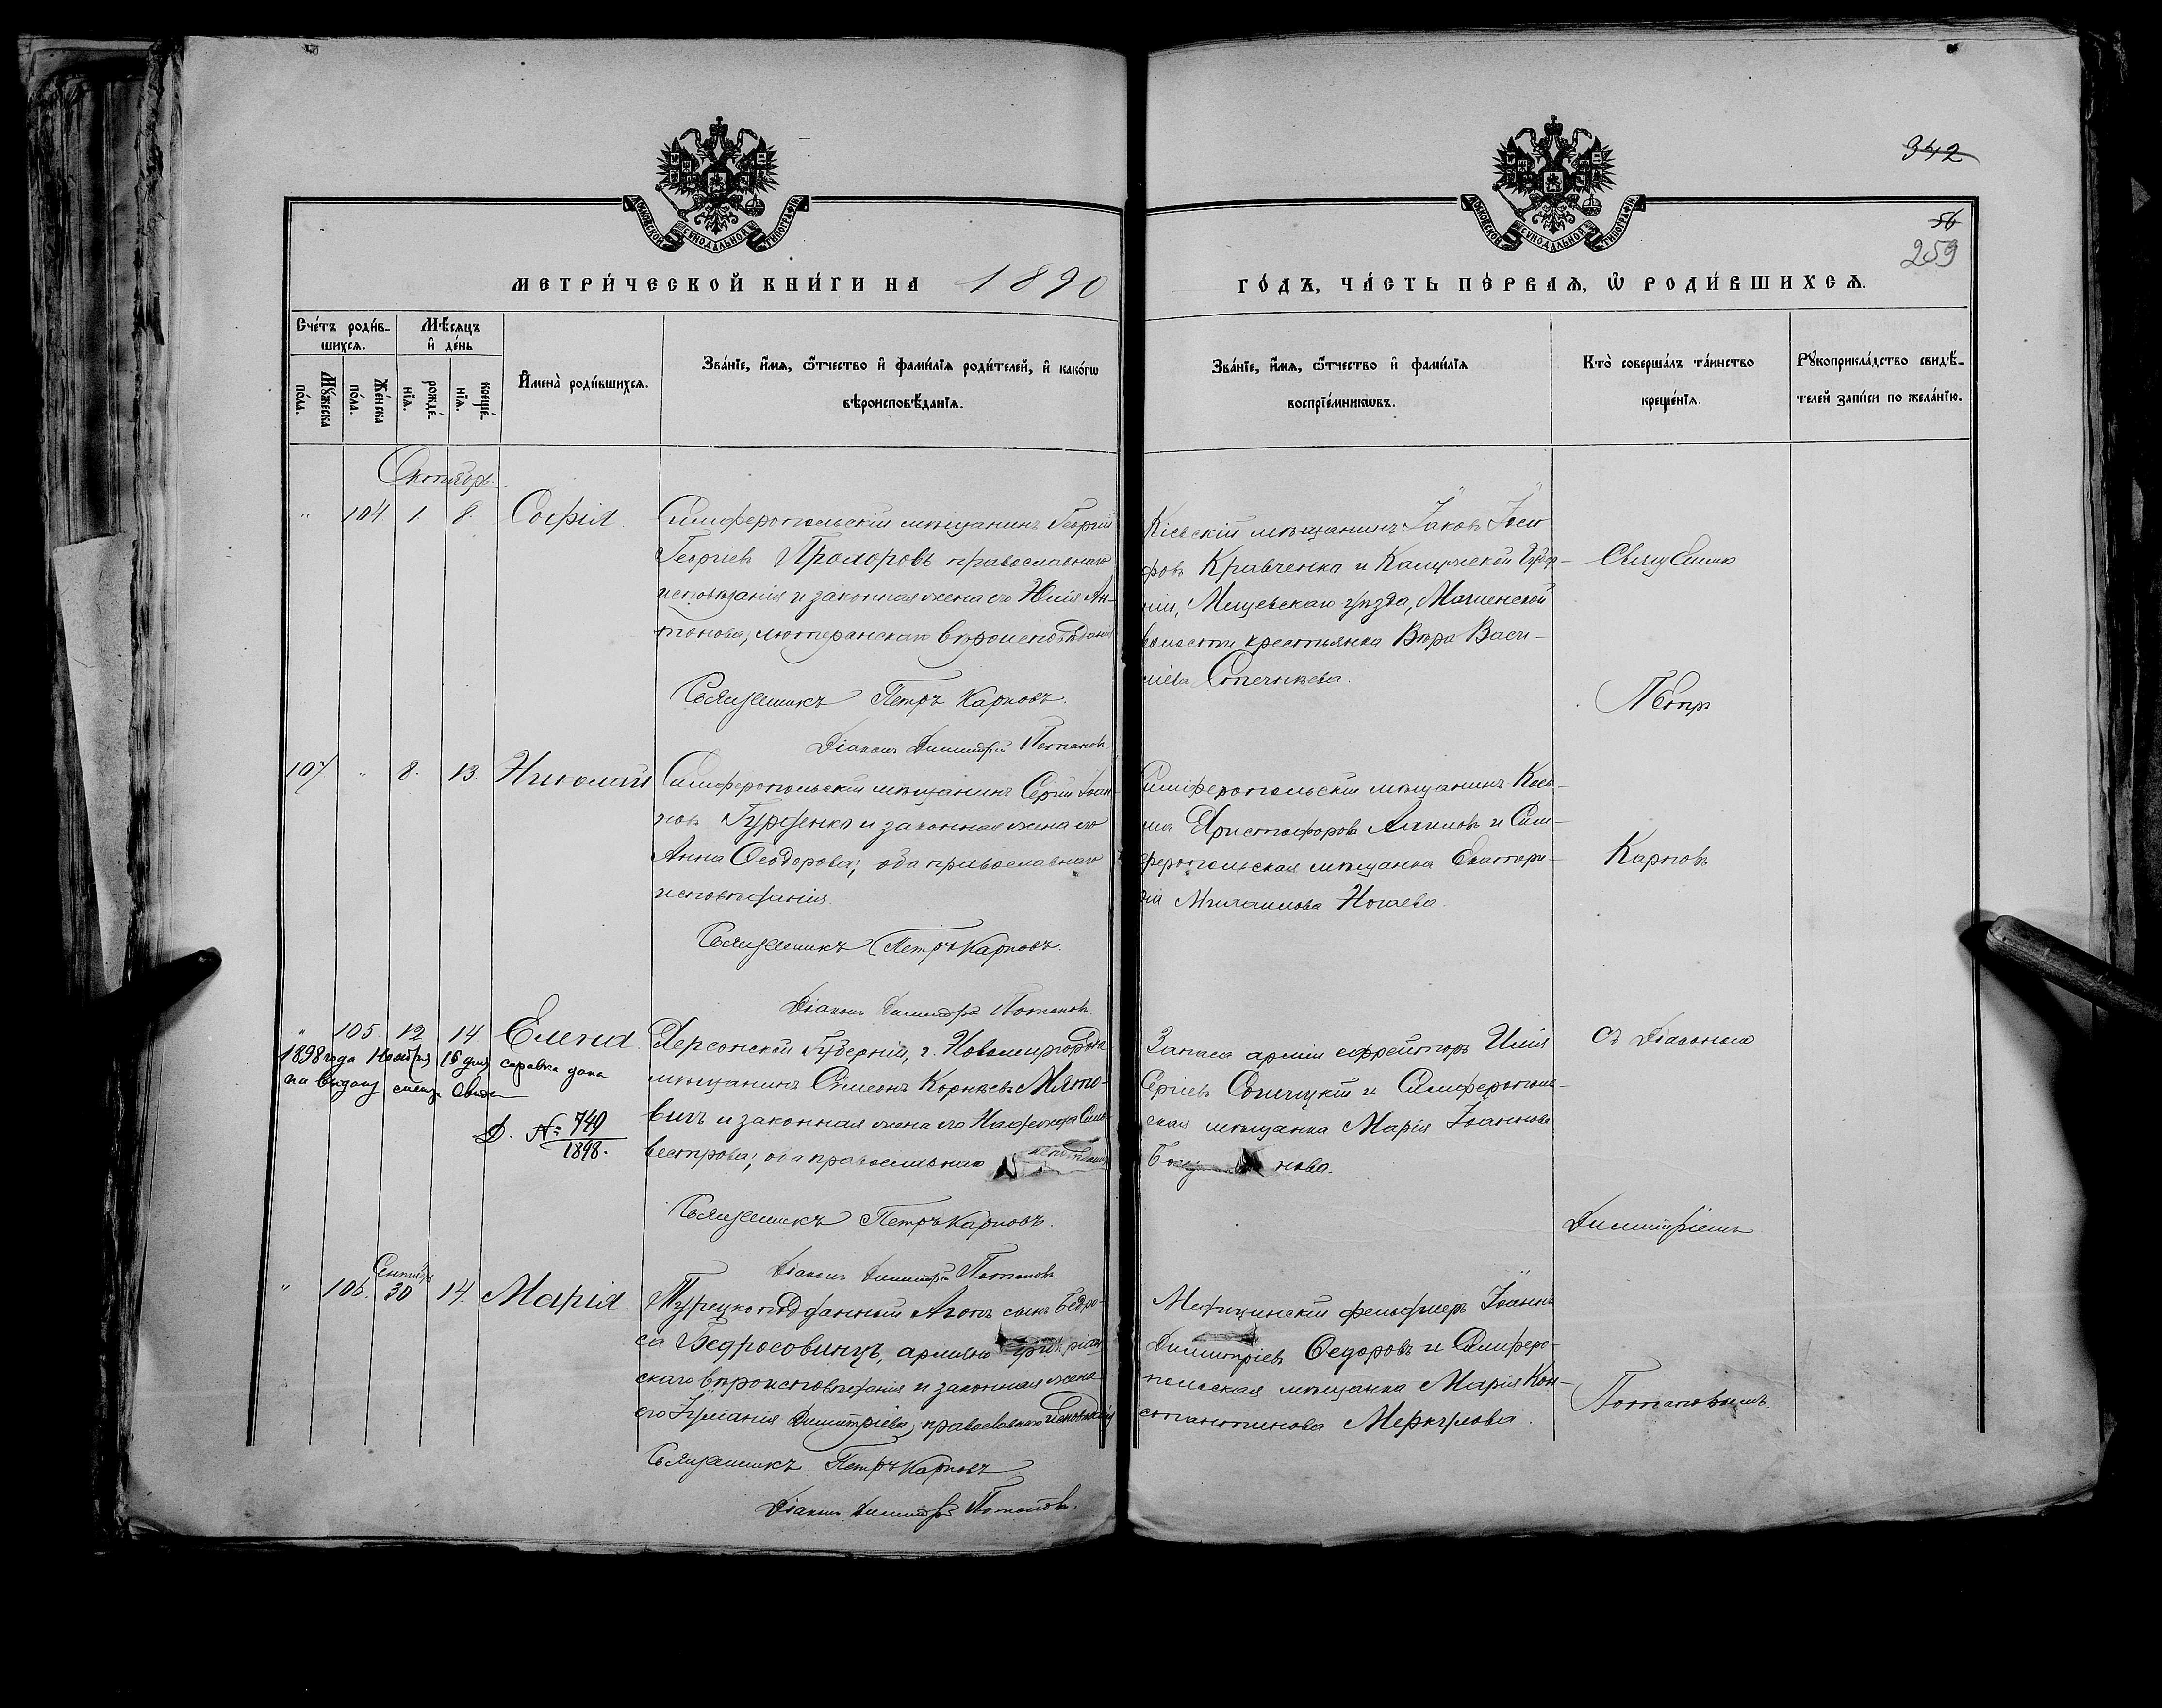 342
56
259
МОСКОВСКОЙ СѴНОДАЛЬНОЙ ТИПОГРАФІИ
МОСКОВСКОЙ СѴНОДАЛЬНОЙ ТИПОГРАФІИ
МЕТРИ́ЧЕСКОЙ КНИ́ГИ НА 1890
ГО́ДЪ, ЧА́СТЬ ПЕ́РВАѦ, Ѽ РОДИ́ВШИХСѦ.
Сче́тъ роди́в-
шихсѧ.
Мꙋ́жеска
по́ла.
Же́нска
по́ла.
Мѣ́сѧцъ
и҆ де́нь
рожде́-
нїѧ.
креще́-
нїѧ.
И҆мена̀ роди́вшихсѧ.
Зва́нїе, и҆́мѧ, ѻ҆́тчество и҆ фами́лїѧ роди́телей, и҆ како́гѡ
вѣроисповѣ́данїѧ.
Зва́нїе, и҆́мѧ, ѻ҆́тчество и҆ фами́лїѧ
воспрїе́мникѡвъ.
Кто̀ соверша́лъ та́инство
креще́нїѧ.
Рꙋкоприкла́дство свидѣ́-
телей за́писи по жела́нїю.
Октябрь.
" 104 1. 8. Софія.
Симферопольскій мѣщанинъ Георгій
Георгіевъ Прохоровъ православнаго
исповѣданія и законная жена его Юлія Ан-
тонова, лютеранскаго вѣроисповѣданія
Священникъ Петръ Карповъ.
Діаконъ Димитрій Потаповъ
Кіевскій мѣщанинъ Іаковъ Іоси
фовъ Кравченко и Калужской Губер-
ніи, Мещевскаго уѣзда,
волости крестьянка Вѣра Васи-
лiева
Священникъ
Петръ
107. " 8. 13. Николай
Симферопольскій мѣщанинъ Сергій Іоан-
новъ Гурженко и законная жена его
Анна Ѳеодорова; оба православнаго
исповѣданія.
Священникъ Петръ Карповъ.
Діаконъ Димитрій Потаповъ
Симферопольскій мѣщанинъ Кось-
ма Христофоровъ и Сим-
феропольская мѣщанка Екатери-
на Михаилова Ногаева.
Карповъ
" 105 12 14 Елена.
1898 года Ноября 16 дня справка дана
на выдачу свид.
Д. № 749
1898.
Херсонской Губерніи, г. Новомиргорода
мѣщанинъ Симеонъ Корнѣевъ Мято-
вичъ и законная жена его Надежда Силь-
вестрова; оба православнаго исповѣданія
Священникъ Петръ Карповъ.
Діаконъ Димитрій Потаповъ.
Запаса арміи ефрейторъ Илія
Сергіевъ и Симферополь-
ская мѣщанка Марія Іоаннова
нова.
Съ Діакономъ
Димитріемъ
" 106. Сентябрь 30 14. Марія.
Турецкоподданный Агопъ сынъ Бедро-
са Бедросовинцъ, армяно григоріан
скаго вѣроисповѣданія и законная жена
его Іуліанія Димитріева, православнаго исповѣданія
Священникъ Петръ Карповъ
Діаконъ Димитрій Потаповъ.
Медицинскій фельдшеръ Іоаннъ
Димитріевъ Ѳедоровъ и Симферо-
польская мѣщанка Марія Кон-
стантинова Меркулова.
Потаповымъ.